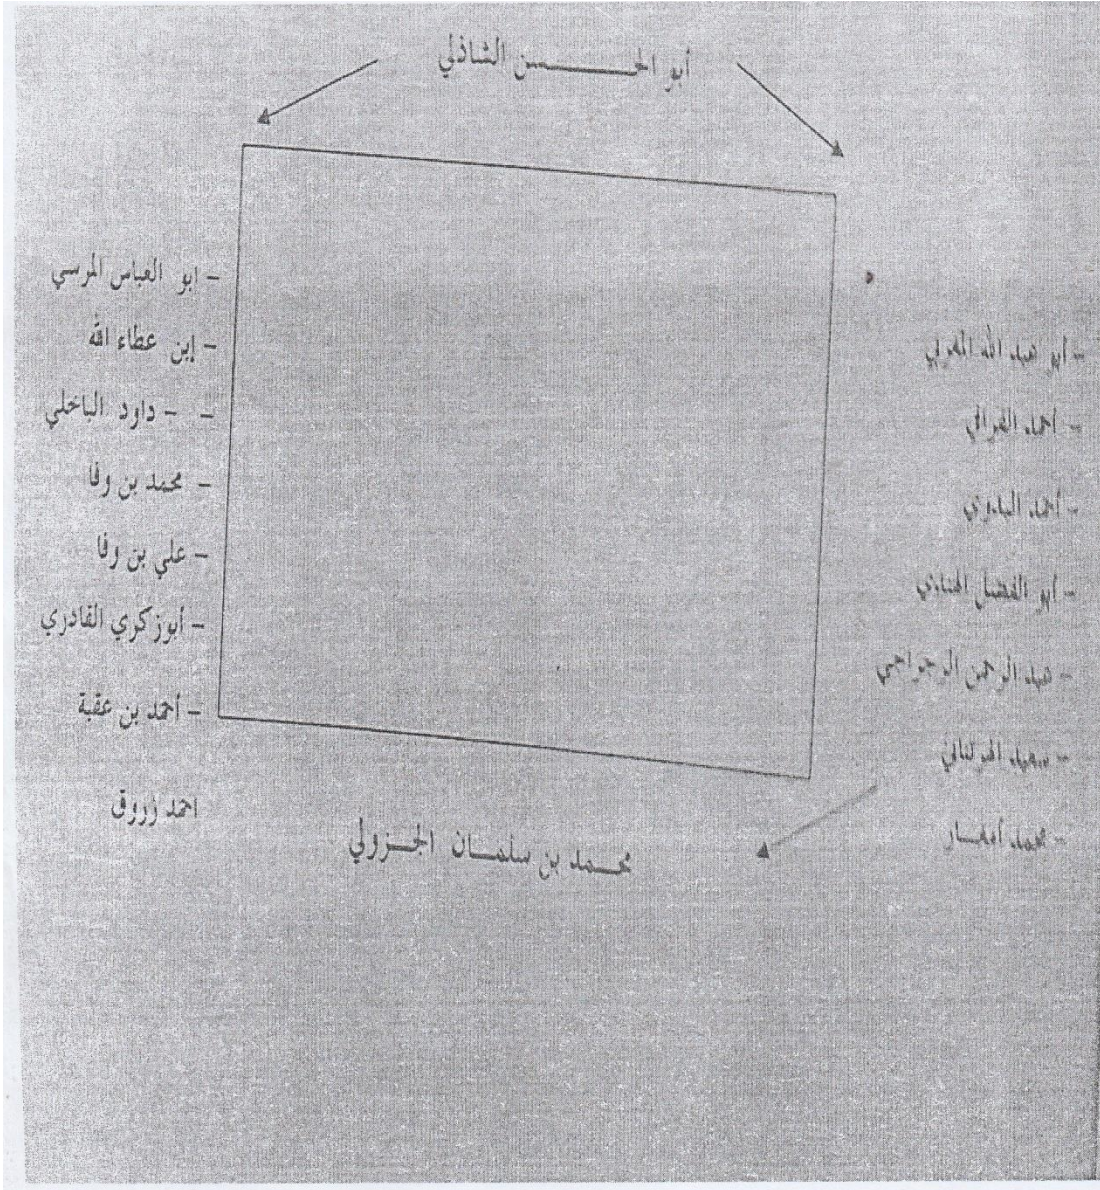 أبو الحـــــــسن الشاذلي
- أبو عبد الله المغربي
- أحمد القرافي
- أحمد البدوي
- أبو الفضل الهنادي
- عبد الرحمن الرجراجي
- سعيد الهرتناني
- محمد أمغـــار
- ابو العباس المرسي
- إبن عطاء الله
- - داود الباخلي
- محمد بن وفا
- علي بن وفا
- أبوزكري القادري
- أحمد بن عقبة
احمد زروق
محــمد بن سلمــان الجــزولي